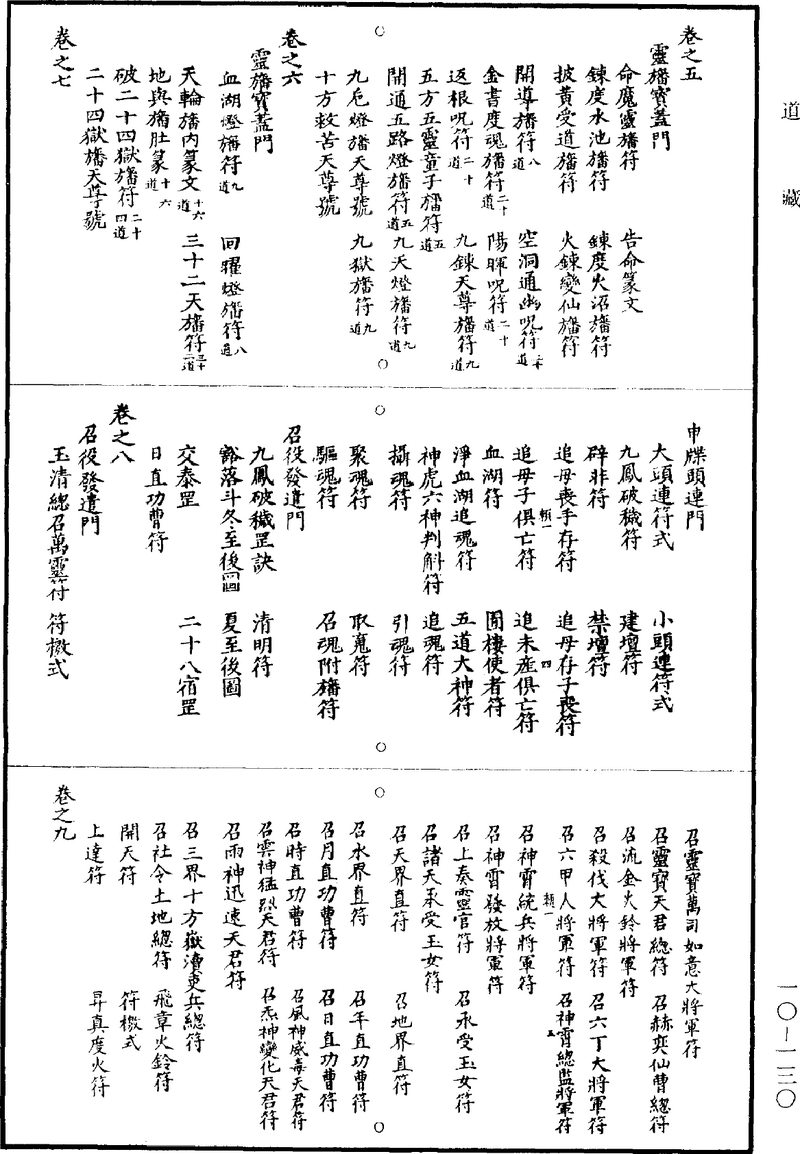 道藏
卷之五
靈旛寶蓋門
命魔靈旛符 告命篆文
鍊度水池旛符 鍊度火沼旛符
披黃受道旛符 火鍊變仙旛符
開導旛符八道 空洞通幽呪符二十道
金書度魂旛符二十道 陽暉呪符二十道
返根呪符二十道 九鍊天尊旛符九道
五方五靈童子旛符五道
開通五路燈旛符五道 九天燈旛符九道
九卮燈旛天尊號 九獄旛符九道
十方救苦天尊號
卷之六
靈旛寶蓋門
血湖燈旛符九道 回耀燈旛符八道
天輪旛內篆文十六道 三十二天旛符三十二道
地輿旛肚篆十六道
破二十四獄旛符二十四道
二十四獄旛天尊號
卷之七
申牒頭連門
大頭連符式 小頭連符式
九鳳破穢符 建壇符
辟非符 禁壇符
追母喪子存符 追母存子喪符
賴一 四
追母子俱亡符 追未産俱亡符
血湖符 闍棲使者符
淨血湖追魂符 五道大神符
神虎六神判斛符 追魂符
攝魂符 引魂符
聚魂符 取魂符
驅魂符 召魂附旛符
召役發遣門
九鳳破穢罡訣 清明符
豁落斗冬至後圖 夏至後圖
交泰罡 二十八宿罡
日直功曹符
卷之八
召役發遣門
玉清總召萬靈符 符檄式
召靈寶萬司如意大將軍符
召靈寶天君總符 召赫奕仙曹總符
召流金火鈴將軍符
召殺伐大將軍符 召六丁大將軍符
召六甲大將軍符 召神霄總監將軍符
賴一 五
召神霄統兵將軍符
召神霄發放將軍符
召上奏靈官符 召承受玉女符
召諸天承受玉女符
召天界直符 召地界直符
召水界直符 召年直功曹符
召月直功曹符 召日直功曹符
召時直功曹符 召風神威毒天君符
召雲神猛烈天君符 召炁神變化天君符
召雨神迅速天君符
召三界十方嶽瀆吏兵總符
召社令土地總符 飛章火鈴符
開天符 符檄式
上達符 昇真度火符
卷之九
一〇—一三〇